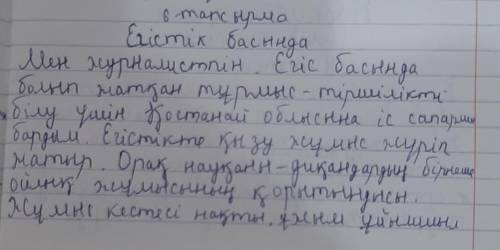 6-тапсырма
Егістік басында
Мен журналистпін. Егіс басында
болып жатқан тұрмыс-тіршілікті
білу үшін Қостанай облысына іс сапармен
бардым. Егістікте қызу жұмыс жүріп
жатыр. Орақ науқаны-диқандардың бірнеше
айлық жұмысының қорытындысы.
Жұмыс кестесі нақты, ұжым ұйымшыл